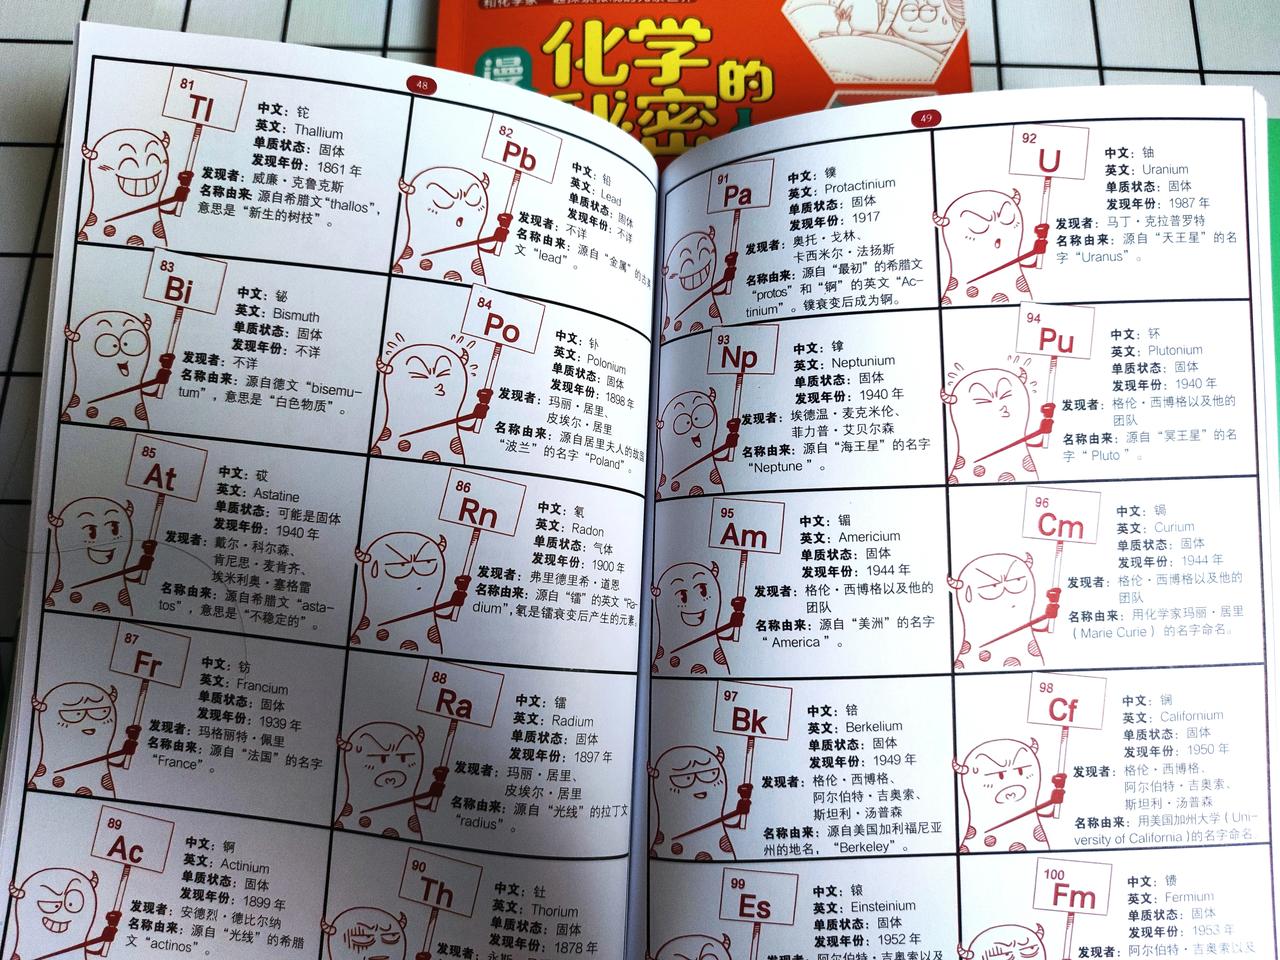 化学的
秘密
48
81
Tl
中文：铊
英文：Thallium
单质状态：固体
发现年份：1861年
发现者：威廉·克鲁克斯
名称由来：源自希腊文“thallos”，
意思是“新生的树枝”。
82
Pb
中文：铅
英文：Lead
单质状态：固体
发现年份：不详
发现者：不详
名称由来：源自“金属”的古英
文“lead”。
83
Bi
中文：铋
英文：Bismuth
单质状态：固体
发现年份：不详
发现者：不详
名称由来：源自德文“bisemu-
tum”，意思是“白色物质”。
84
Po
中文：钋
英文：Polonium
单质状态：固体
发现年份：1898年
发现者：玛丽·居里、
皮埃尔·居里
名称由来：源自居里夫人的故国
“波兰”的名字“Poland”。
85
At
中文：砹
英文：Astatine
单质状态：可能是固体
发现年份：1940年
发现者：戴尔·科尔森、
肯尼思·麦肯齐、
埃米利奥·塞格雷
名称由来：源自希腊文“asta-
tos”，意思是“不稳定的”。
86
Rn
中文：氡
英文：Radon
单质状态：气体
发现年份：1900年
发现者：弗里德里希·道恩
名称由来：源自“镭”的英文“Ra-
dium”，氡是镭衰变后产生的元素。
87
Fr
中文：钫
英文：Francium
单质状态：固体
发现年份：1939年
发现者：玛格丽特·佩里
名称由来：源自“法国”的名字
“France”。
88
Ra
中文：镭
英文：Radium
单质状态：固体
发现年份：1897年
发现者：玛丽·居里、
皮埃尔·居里
名称由来：源自“光线”的拉丁文
“radius”。
89
Ac
中文：锕
英文：Actinium
单质状态：固体
发现年份：1899年
发现者：安德烈·德比尔纳
名称由来：源自“光线”的希腊
文“actinos”。
90
Th
中文：钍
英文：Thorium
单质状态：固体
发现年份：1878年
49
91
Pa
中文：镤
英文：Protactinium
单质状态：固体
发现年份：1917
发现者：奥托·戈林、
卡西米尔·法扬斯
名称由来：源自“最初”的希腊文
“protos”和“锕”的英文“Ac-
tinium”。镤衰变后成为锕。
92
U
中文：铀
英文：Uranium
单质状态：固体
发现年份：1987年
发现者：马丁·克拉普罗特
名称由来：源自“天王星”的名
字“Uranus”。
93
Np
中文：镎
英文：Neptunium
单质状态：固体
发现年份：1940年
发现者：埃德温·麦克米伦、
菲力普·艾贝尔森
名称由来：源自“海王星”的名字
“Neptune”。
94
Pu
中文：钚
英文：Plutonium
单质状态：固体
发现年份：1940年
发现者：格伦·西博格以及他的
团队
名称由来：源自“冥王星”的名
字“Pluto”。
95
Am
中文：镅
英文：Americium
单质状态：固体
发现年份：1944年
发现者：格伦·西博格以及他的
团队
名称由来：源自“美洲”的名字
“America”。
96
Cm
中文：锔
英文：Curium
单质状态：固体
发现年份：1944年
发现者：格伦·西博格以及他的
团队
名称由来：用化学家玛丽·居里
（Marie Curie）的名字命名。
97
Bk
中文：锫
英文：Berkelium
单质状态：固体
发现年份：1949年
发现者：格伦·西博格、
阿尔伯特·吉奥索、
斯坦利·汤普森
名称由来：源自美国加利福尼亚
州的地名，“Berkeley”。
98
Cf
中文：锎
英文：Californium
单质状态：固体
发现年份：1950年
发现者：格伦·西博格、
阿尔伯特·吉奥索、
斯坦利·汤普森
名称由来：用美国加州大学（Uni-
versity of California）的名字命名。
99
Es
中文：锿
英文：Einsteinium
单质状态：固体
发现年份：1952年
发现者：阿尔伯特·吉奥索以及
100
Fm
中文：镄
英文：Fermium
单质状态：固体
发现年份：1953年
发现者：阿尔伯特·吉奥索以及